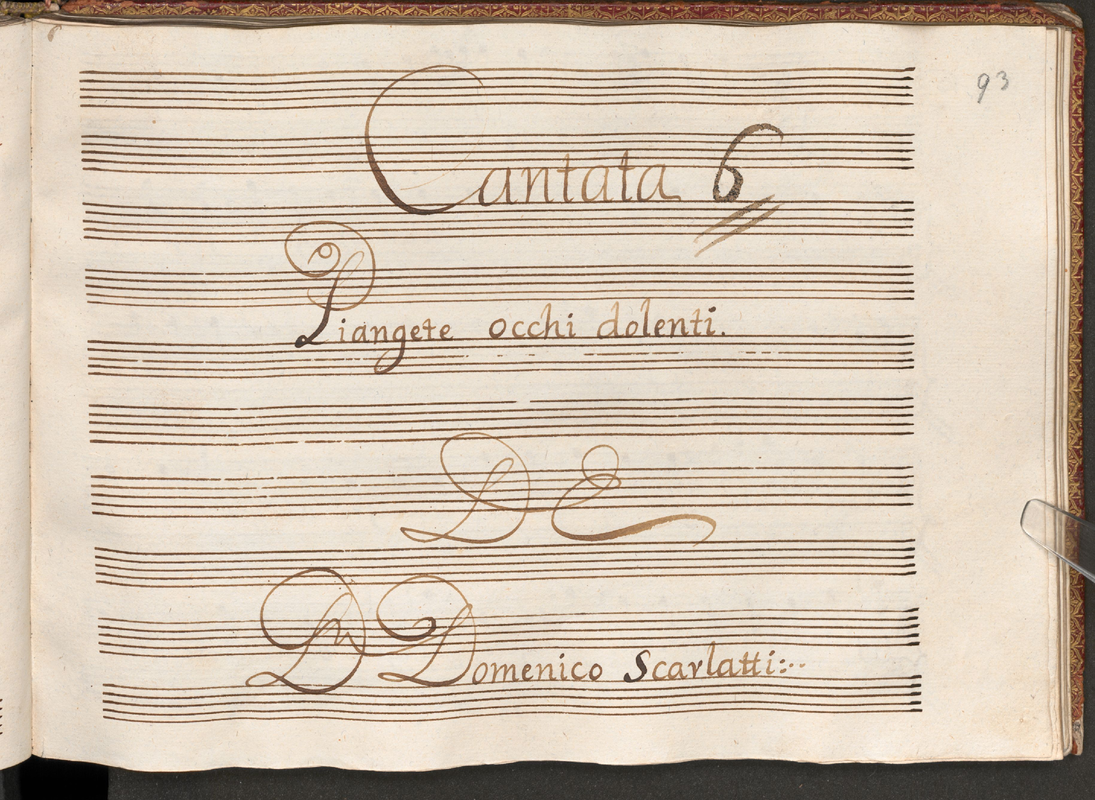 93
Cantata 6
Piangete occhi dolenti.
DE
Dn Domenico Scarlatti:..